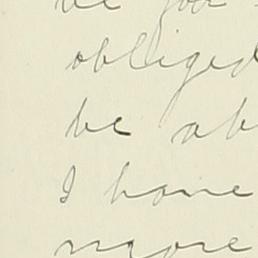 obliged
be ab
I have
more